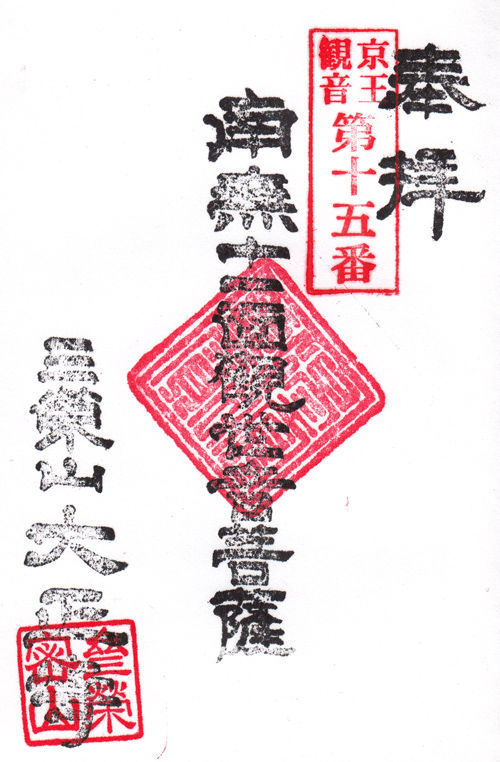 奉拝
京王
観音
第十五番
南無十一面観世音菩薩
三栄山大正寺